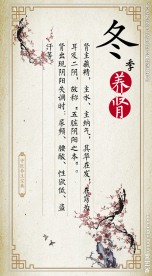 冬
季
养肾
肾主藏精，主水、主纳气，其华在发，在窍为
耳及二阴，故称“五脏阴阳之本”。
肾出现阴阳失调时：尿频、腰酸、性欲低、盗
汗等。